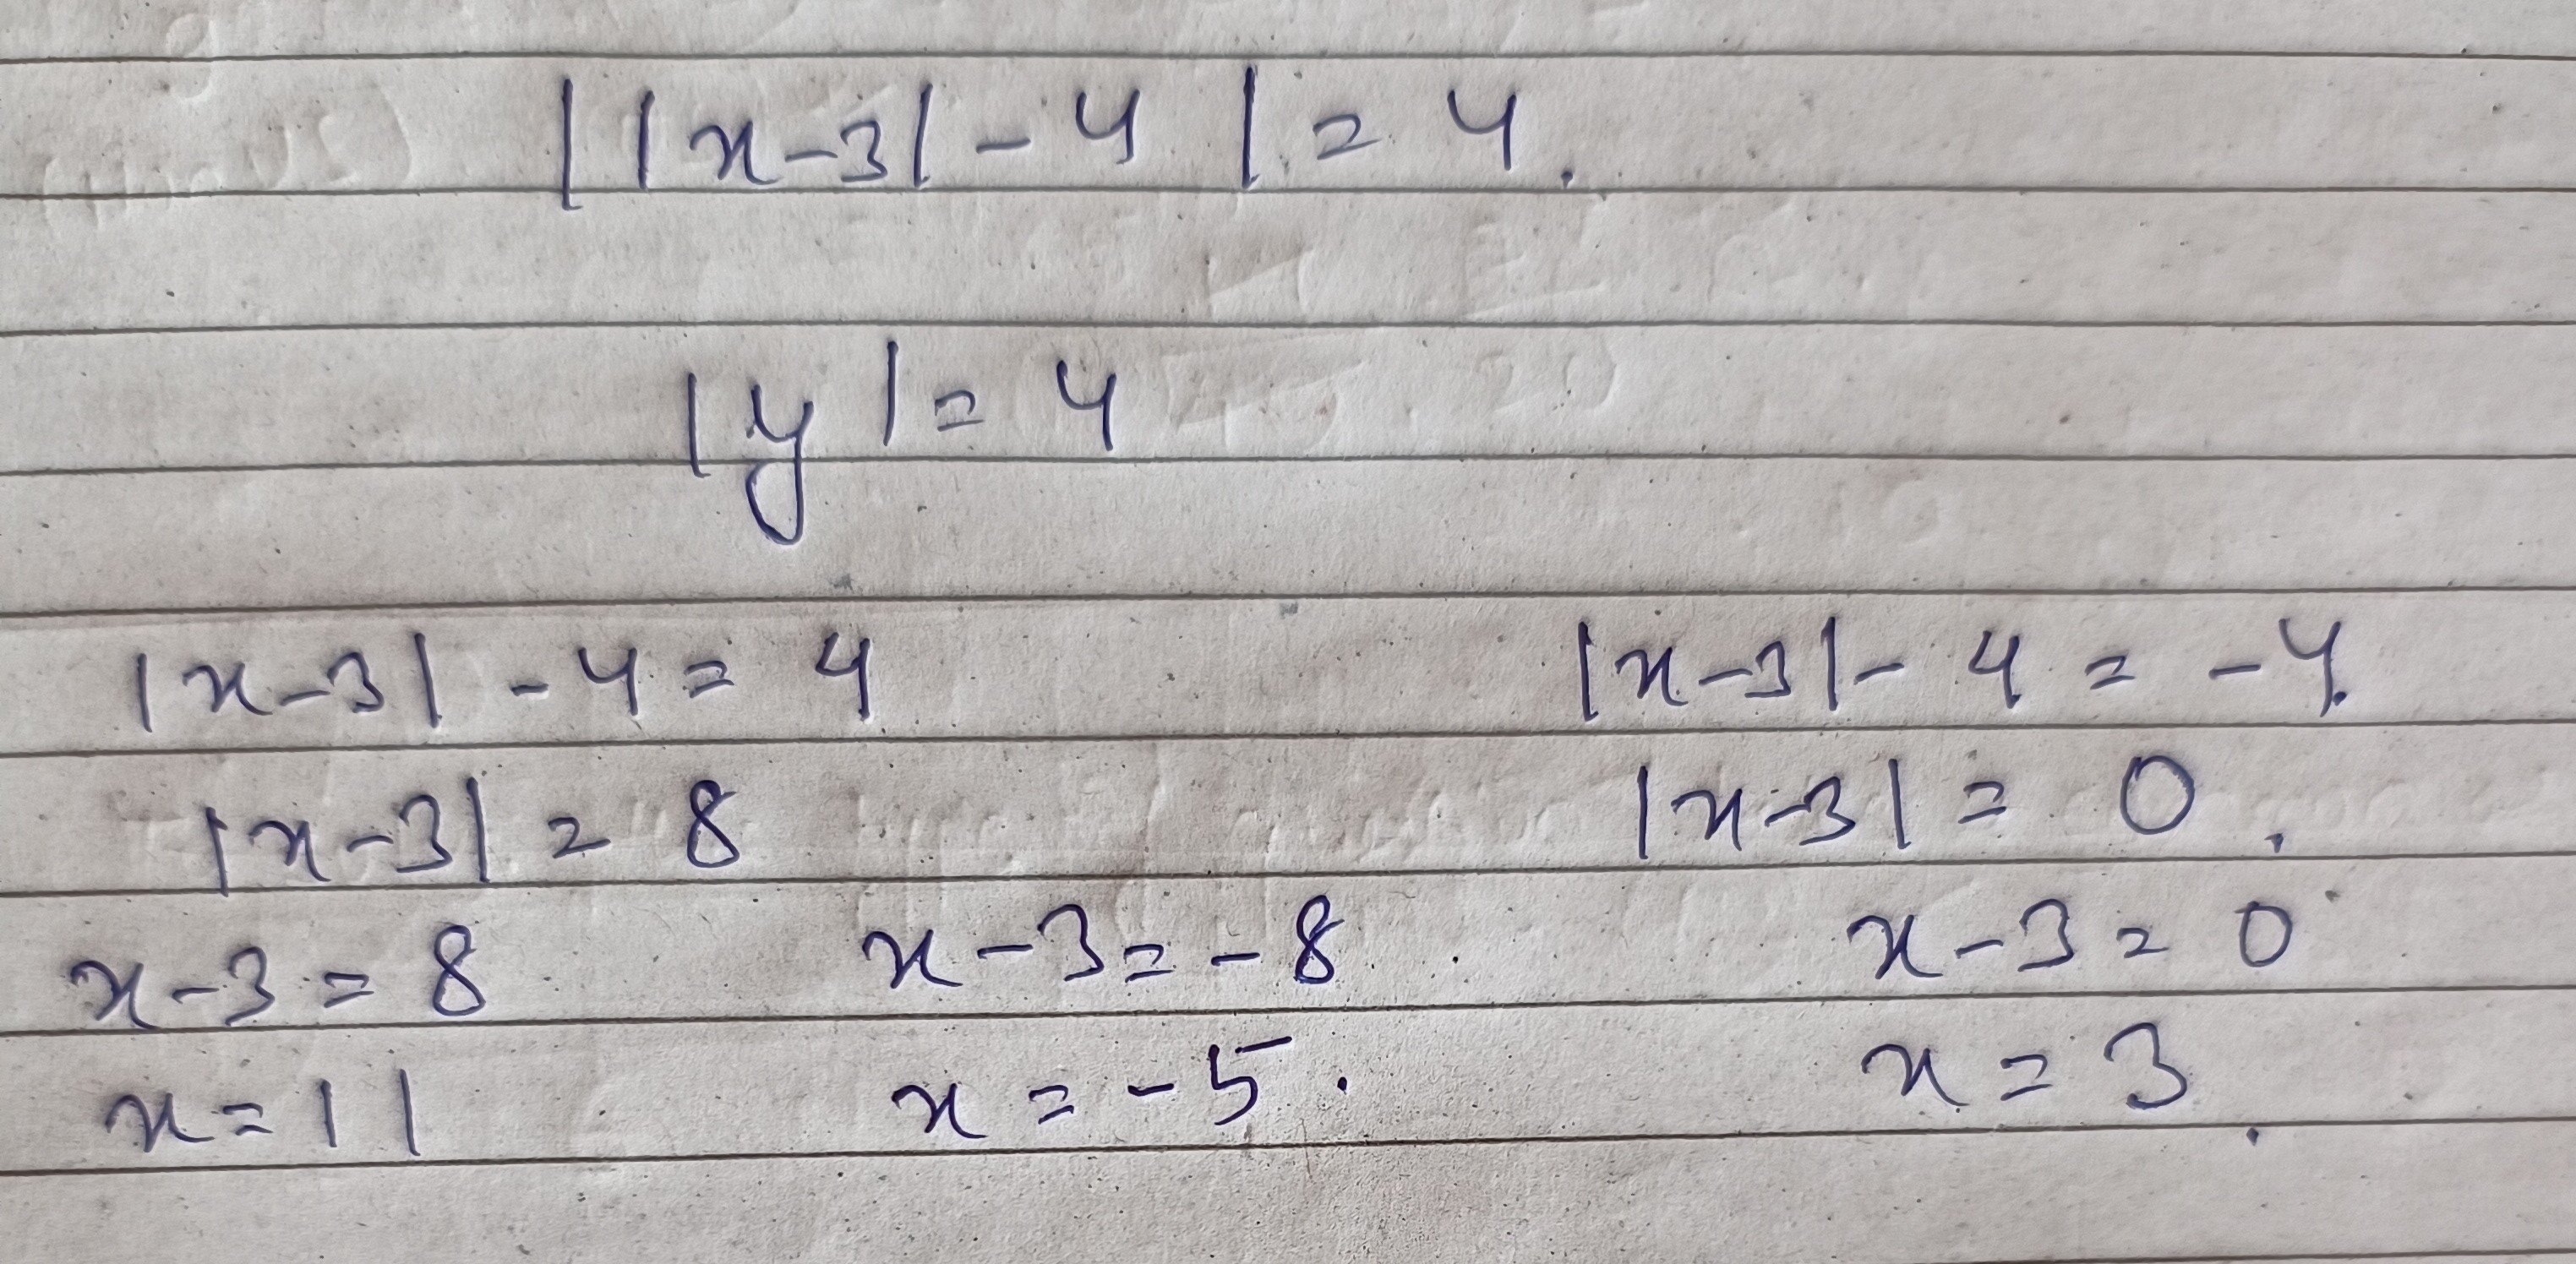 ||x-3|-4|=4.
|y|=4
|x-3|-4=4 |x-3|-4=-4.
|x-3|=8 |x-3|=0.
x-3=8 x-3=-8. x-3=0
x=11 x=-5. x=3.